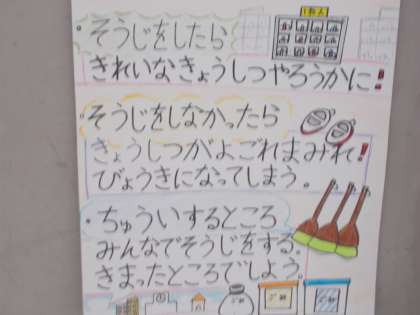 1ねん
・そうじをしたら
きれいなきょうしつやろうかに!
・そうじをしなかったら
きょうしつがよごれまみれ!
びょうきになってしまう。
・ちゅういするところ
みんなでそうじをする。
きまったところでしよう。